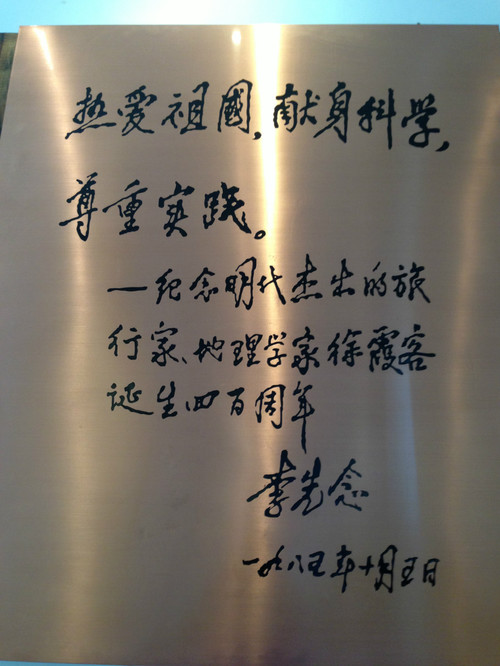 热爱祖國，献身科学，
尊重实践。
—纪念明代杰出的旅
行家、地理学家徐霞客
诞生四百周年
李先念
一九八五年十月五日